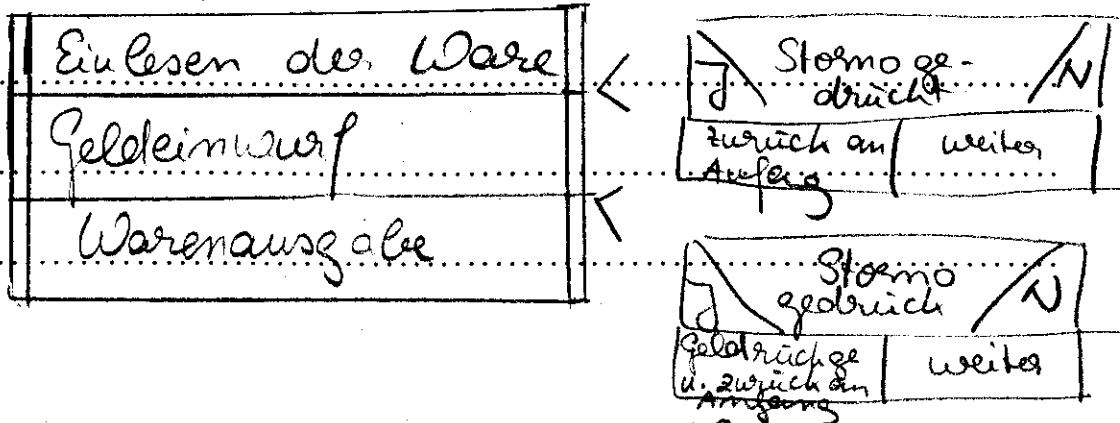 Einlesen der Ware
Geldeinwurf
Warenausgabe
J Storno ge-
drückt N
zurück an
Anfang
weiter
J Storno
gedrück N
Geldrückge
u. zurück an
Anfang
weiter